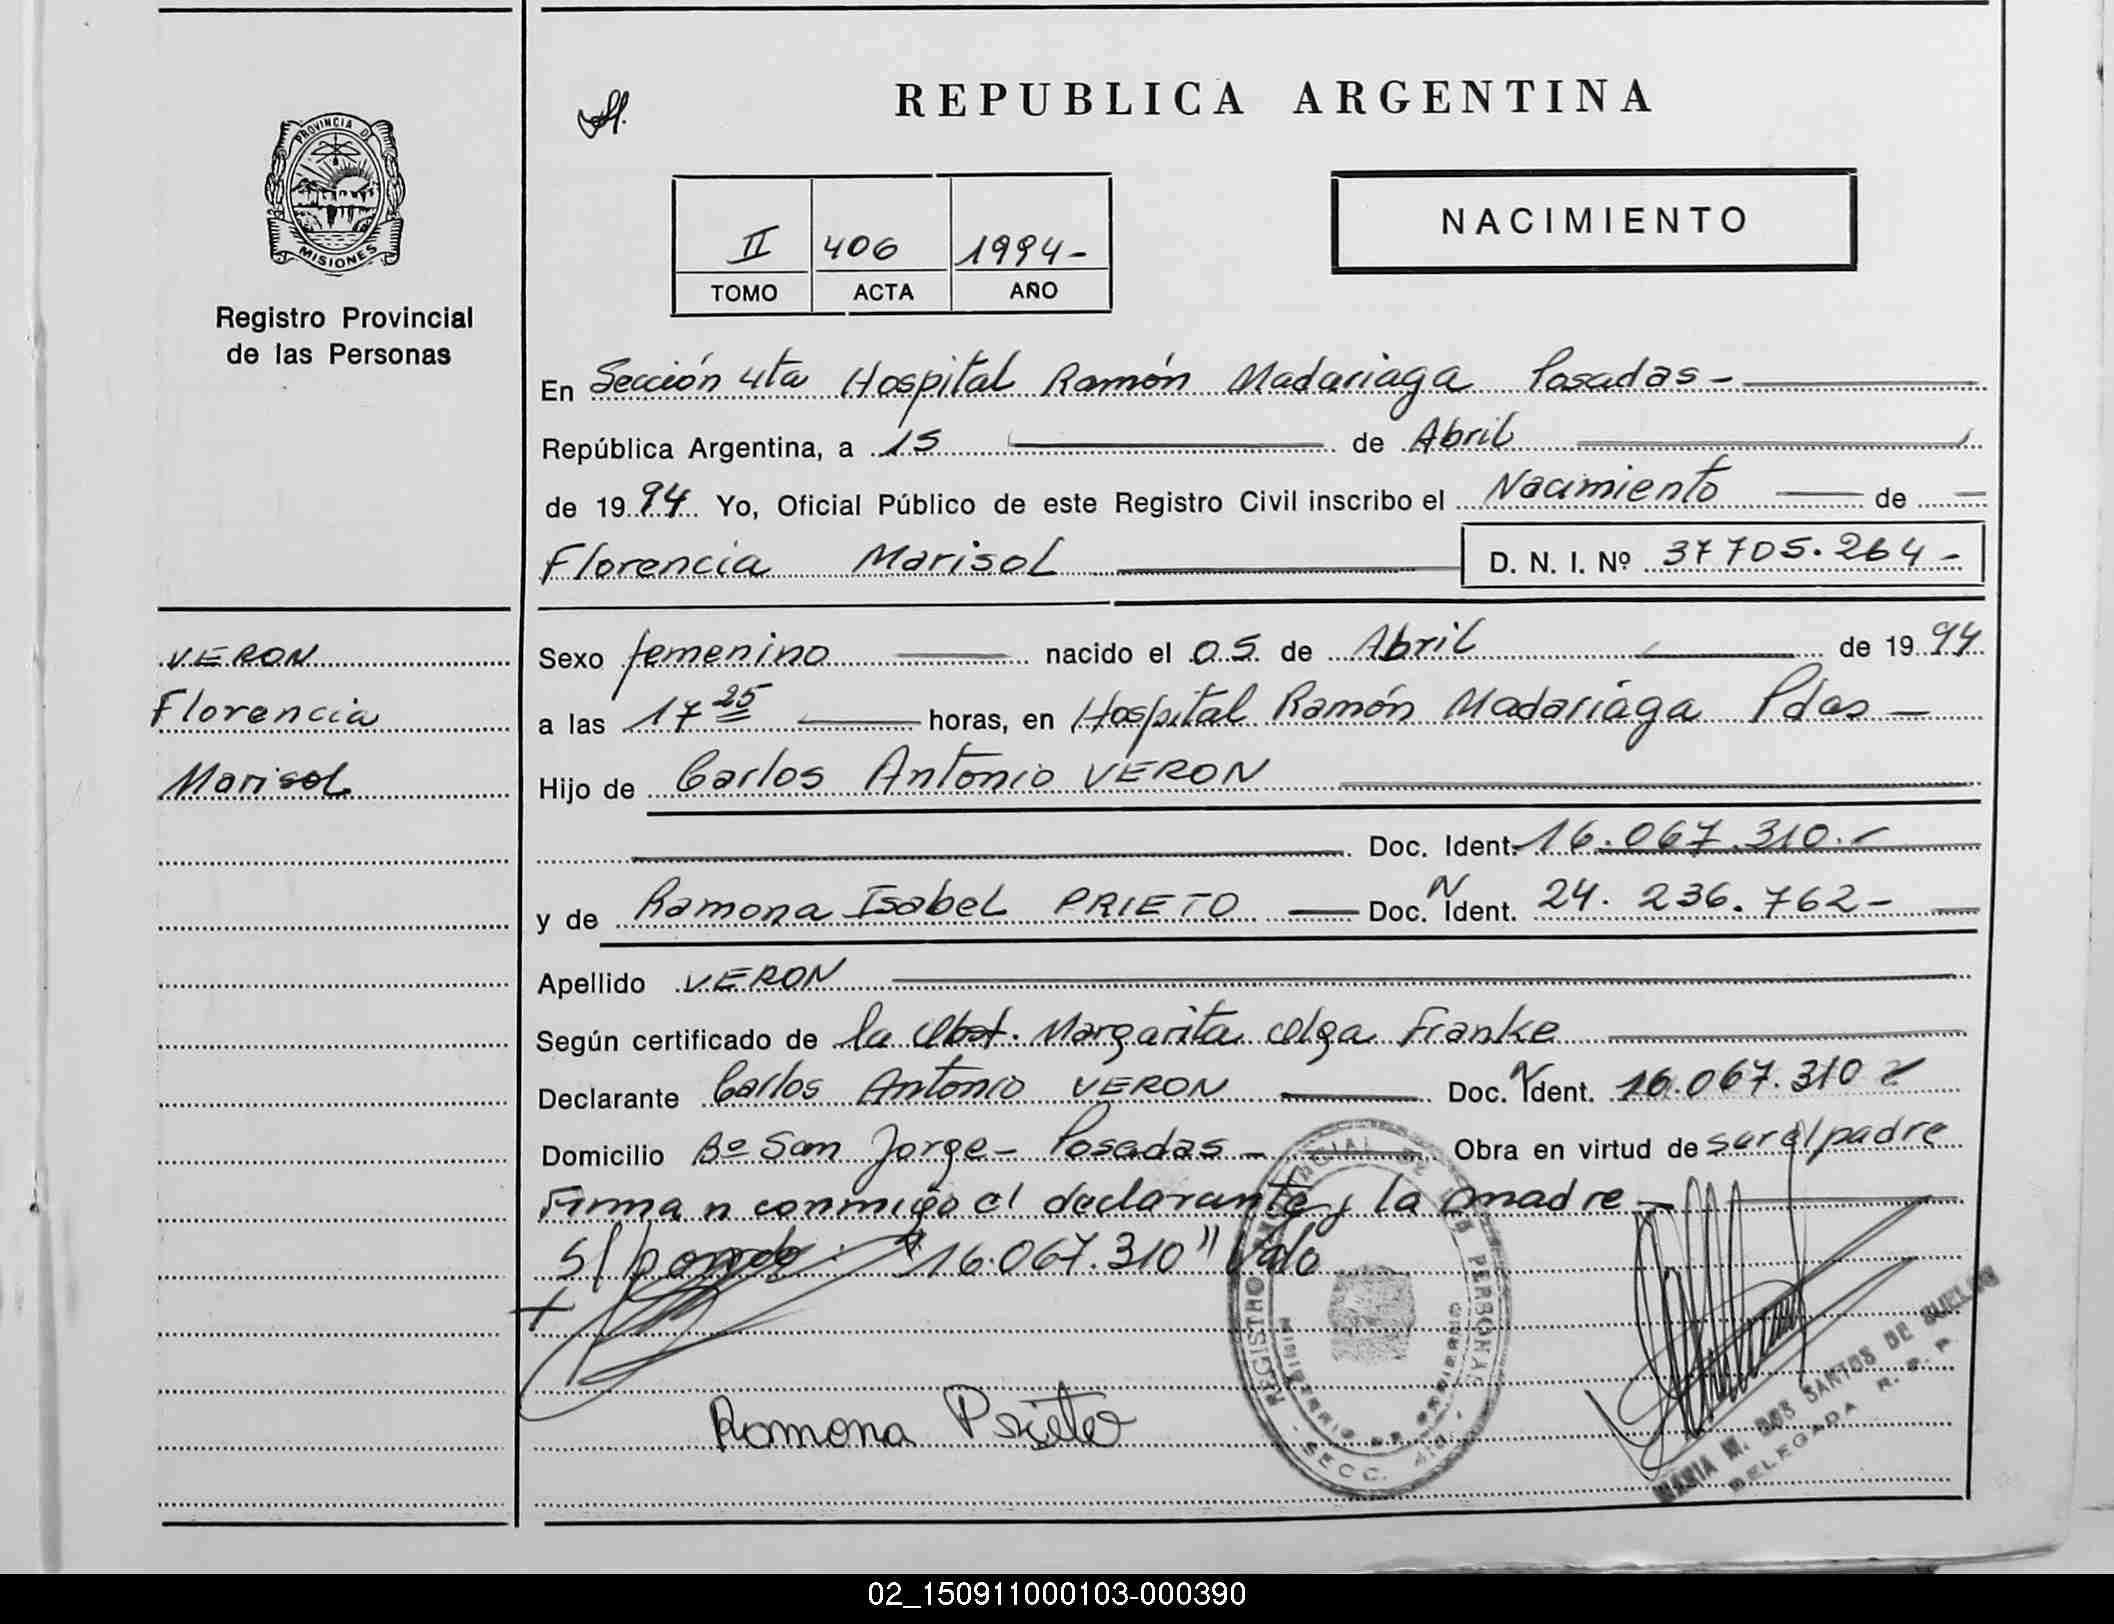 REPUBLICA ARGENTINA
PROVINCIA DE
MISIONES
Registro Provincial
de las Personas
NACIMIENTO
II 406 1994-
TOMO ACTA AÑO
En Sección 4ta Hospital Ramón Madariaga Posadas-
República Argentina, a 15 de Abril
de 1994 Yo, Oficial Público de este Registro Civil inscribo el Nacimiento de
Florencia Marisol D. N. I. Nº 37705.264-
VERON
Florencia
Marisol
Sexo femenino nacido el 05 de Abril de 1994
a las 17 25 horas, en Hospital Ramón Madariaga Pdas-
Hijo de Carlos Antonio VERON
Doc. Ident. 16.067.310.-
y de Ramona Isabel PRIETO Doc. N Ident. 24.236.762-
Apellido VERON
Según certificado de la Obst. Margarita Olga Franke
Declarante Carlos Antonio VERON Doc. N Ident. 16.067.310
Domicilio Bº San Jorge- Posadas- Obra en virtud de ser el padre
Firman conmigo el declarante y la madre-
"16.067.310" Vale
Ramona Prieto
REGISTRO PROVINCIAL DE LAS PERSONAS
MINISTERIO DE GOBIERNO
SECC. 4ta.
MARIA M. DOS SANTOS DE
DELEGADA R. P. P.
02_150911000103-000390